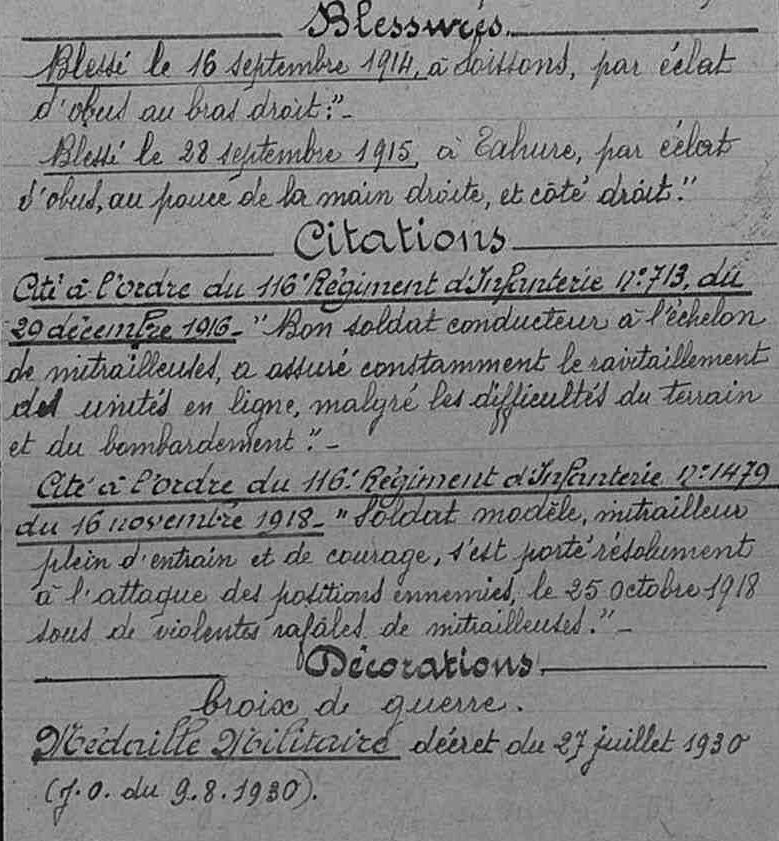 Blessures
Blessé le 16 septembre 1914, à Soissons, par éclat
d'obus au bras droit:"-
Blessé le 28 septembre 1915, à Tahure, par éclat
d'obus, au pouce de la main droite, et côté droit."
Citations
Cité à l'ordre du 116e Régiment d'Infanterie N°713, du
29 décembre 1916_ "Bon soldat conducteur à l'échelon
de mitrailleuses, a assuré constamment le ravitaillement
des unités en ligne, malgré les difficultés du terrain
et du bombardement"._
Cité à l'ordre du 116e Régiment d'Infanterie N°1479
du 16 novembre 1918_ "Soldat modèle, mitrailleur
plein d'entrain et de courage, s'est porté résolument
à l'attaque des positions ennemies, le 25 octobre 1918
sous de violentes rafales de mitrailleuses."_
Décorations
Croix de guerre.
Médaille Militaire décret du 27 juillet 1930
(J.O. du 9.8.1930).